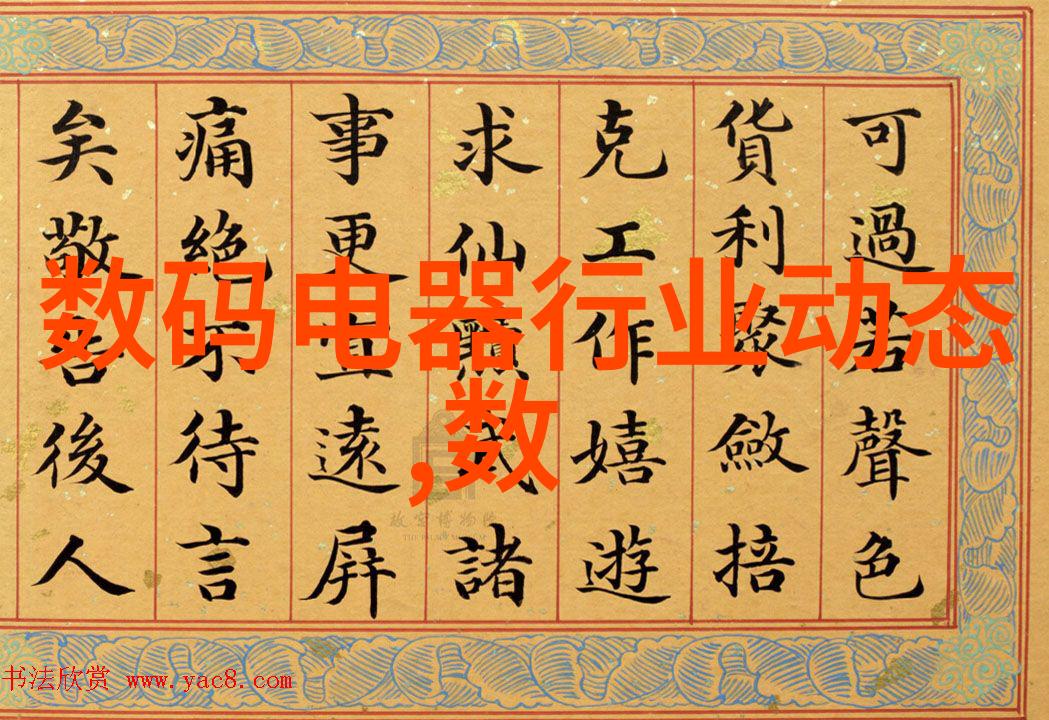 可過若聲色
貨利聚斂掊
克工作嬉遊
求仙諸
事更宜遠屏
痛絕不待言
矣敬告後人
数码电器行业动态
,数
故宫博物院
THE PALACE MUSEUM
书法欣赏 www.yac8.com